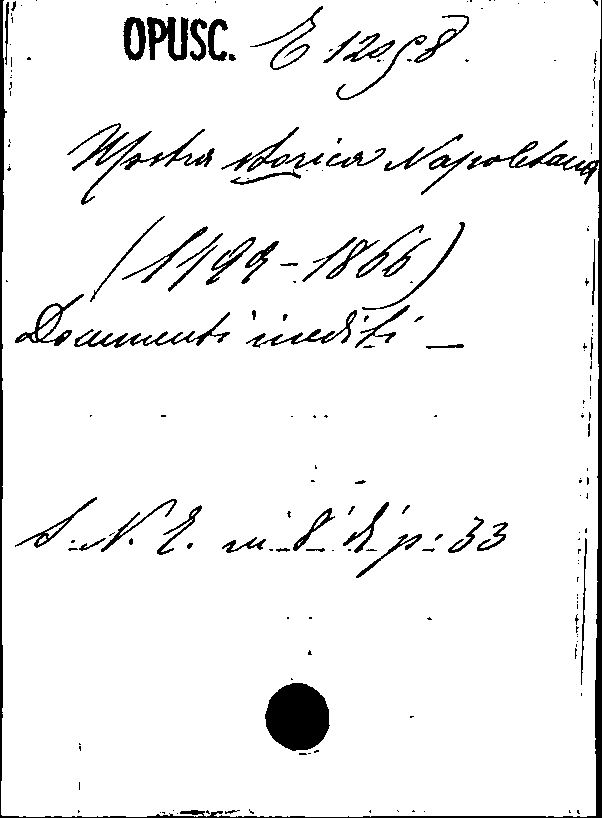 OPUSC. E
Mostra storica Napoletana
(1799-1866)
Documenti inediti —
S. N. E. in 8° di p: 33